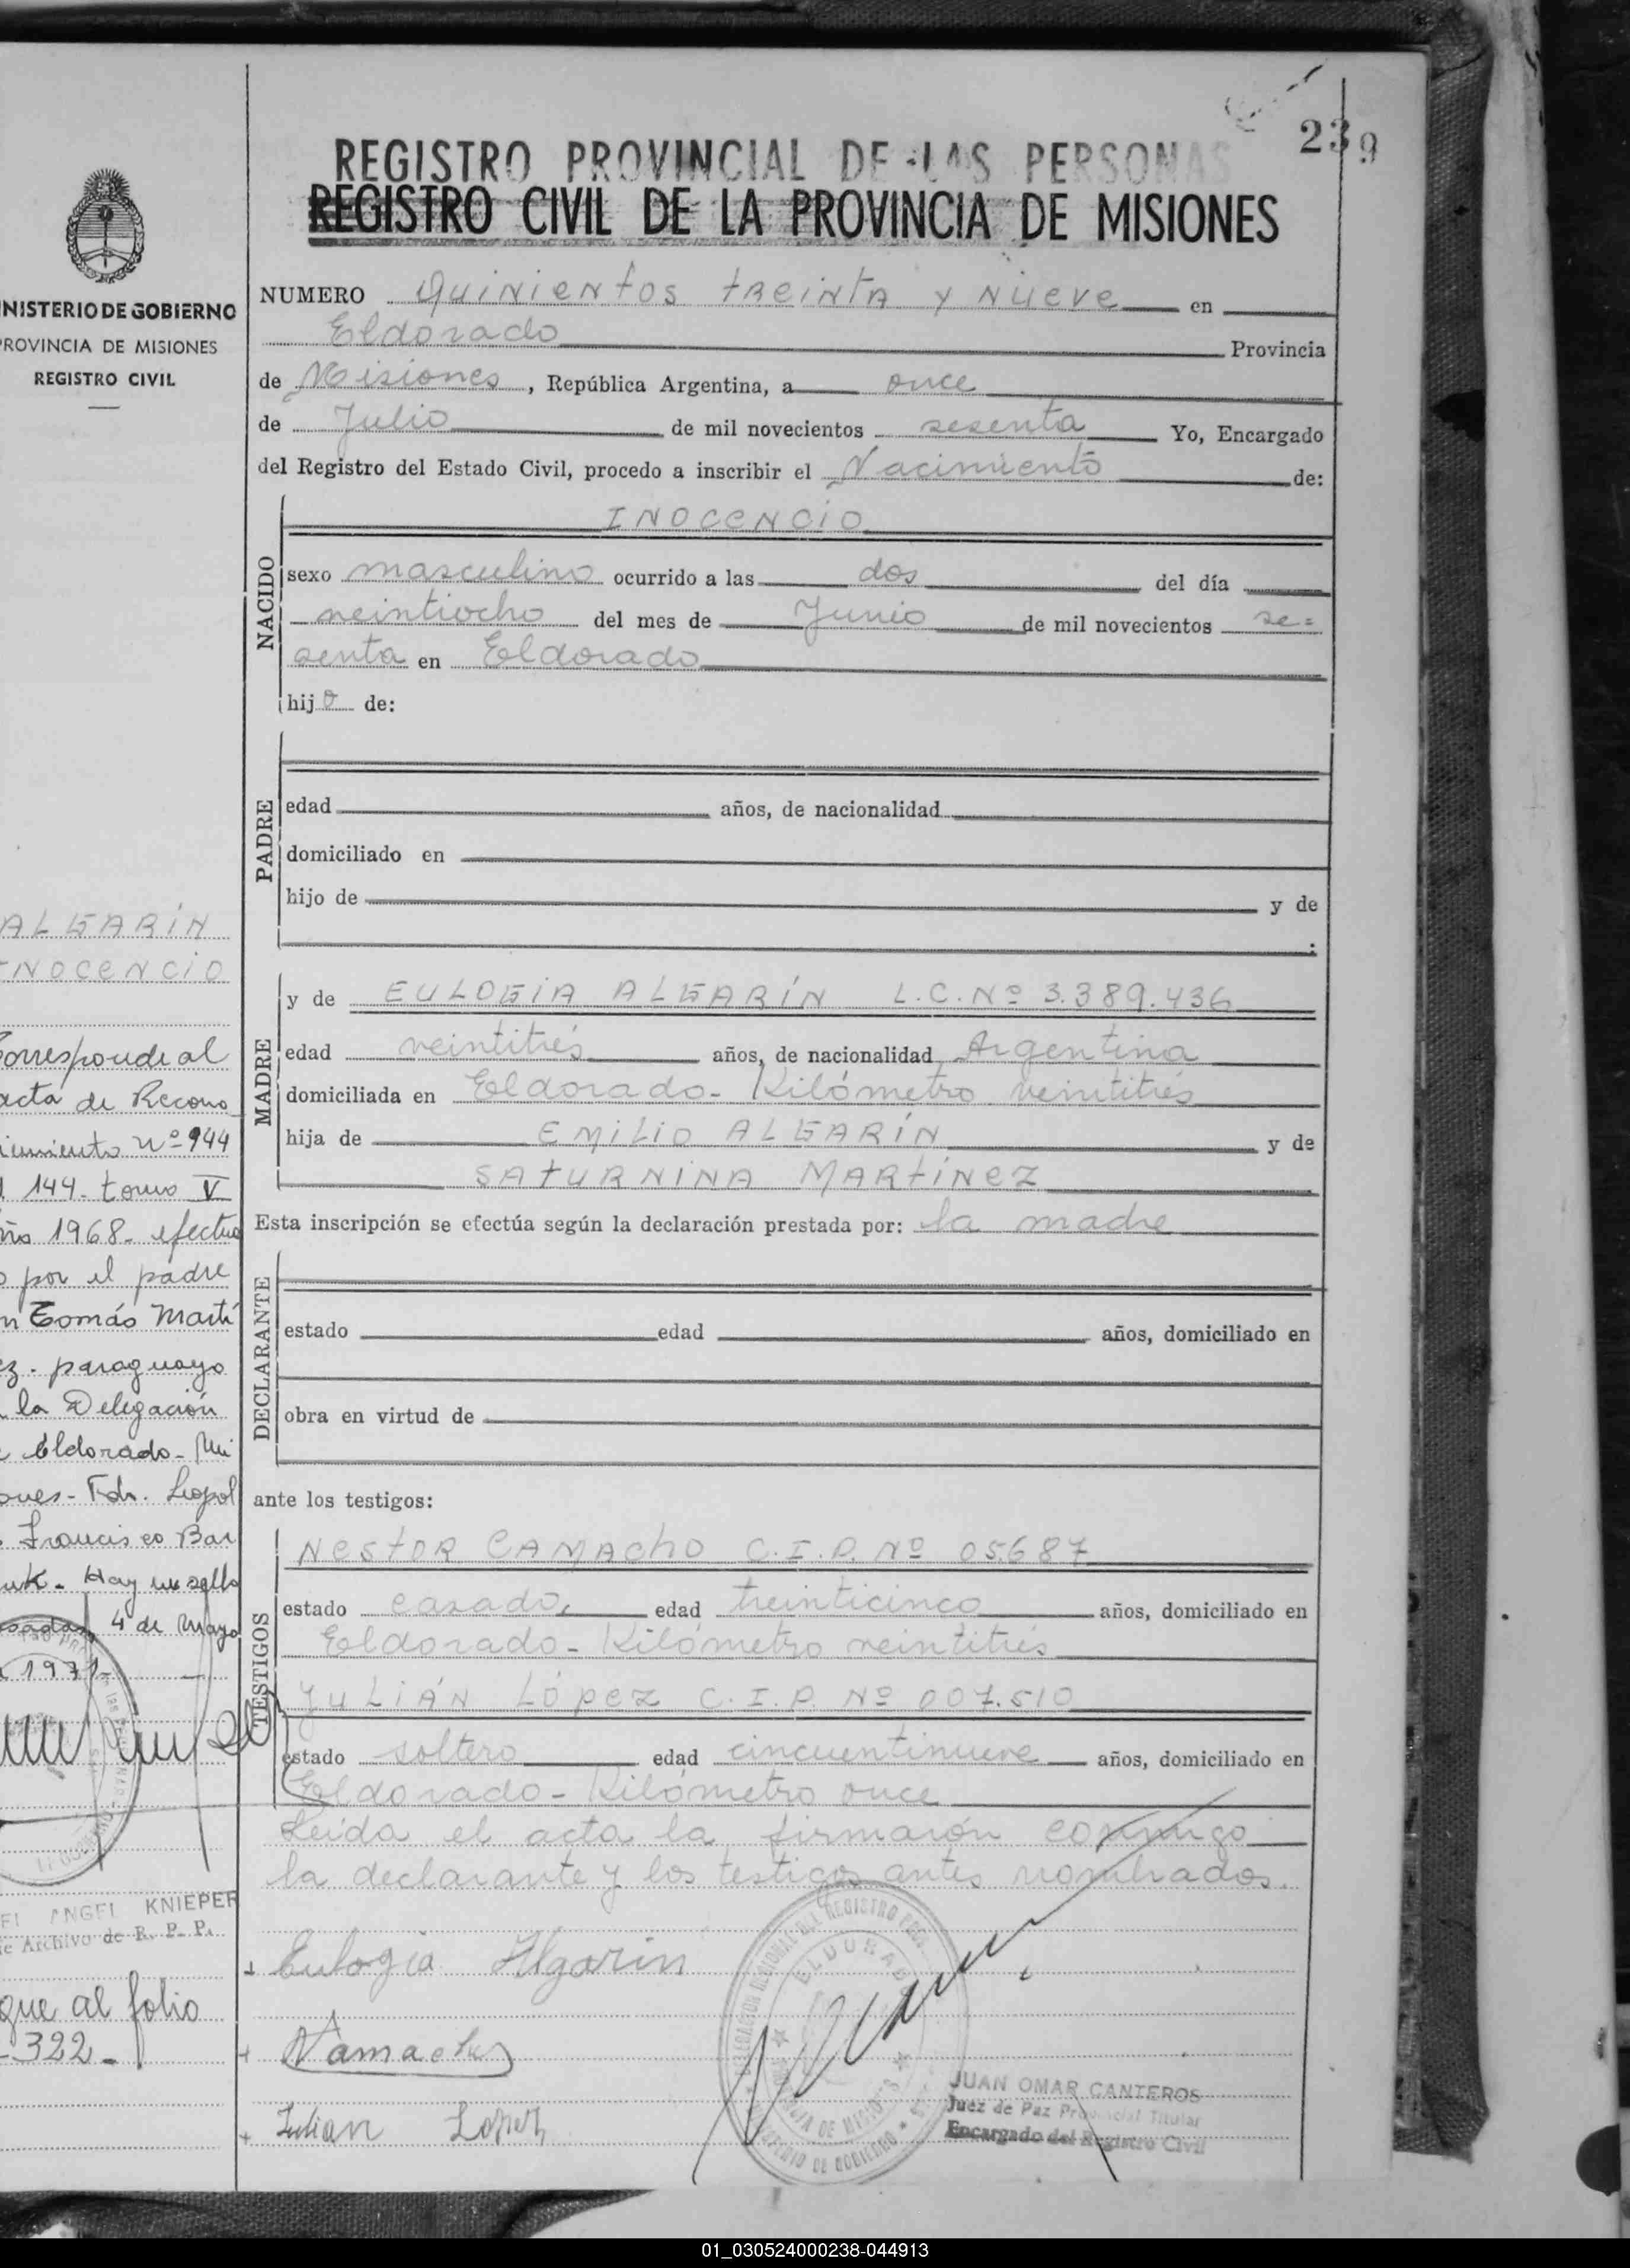 239
REGISTRO PROVINCIAL DE LAS PERSONAS
REGISTRO CIVIL DE LA PROVINCIA DE MISIONES
NISTERIO DE GOBIERNO
PROVINCIA DE MISIONES
REGISTRO CIVIL
NUMERO Quinientos treinta y nueve en
Eldorado Provincia
de Misiones, República Argentina, a once
de Julio de mil novecientos sesenta Yo, Encargado
del Registro del Estado Civil, procedo a inscribir el Nacimiento de:
NACIDO
INOCENCIO
sexo masculino ocurrido a las dos del día
veintiocho del mes de Junio de mil novecientos se=
senta en Eldorado
hijo de:
PADRE
edad años, de nacionalidad
domiciliado en
hijo de y de
MADRE
y de EULOGIA ALGARÍN L.C.Nº 3.389.436
edad veintitrés años, de nacionalidad Argentina
domiciliada en Eldorado- Kilómetro veintitrés
hija de EMILIO ALGARÍN y de
SATURNINA MARTÍNEZ
Esta inscripción se efectúa según la declaración prestada por: la madre
DECLARANTE
estado edad años, domiciliado en
obra en virtud de
ante los testigos:
TESTIGOS
NESTOR CAMACHO C.I.P. Nº 05687
estado casado, edad treinticinco años, domiciliado en
Eldorado- Kilómetro veintitrés
JULIÁN LÓPEZ C.I.P. Nº 007.510
estado soltero edad cincuentinueve años, domiciliado en
Eldorado- Kilómetro once
Leída el acta la firmarón conmigo
la declarante y los testigos antes nombrados.
Eulogia Algarin
Namacho
Julian Lopez
JUAN OMAR CANTEROS
Juez de Paz Provincial Titular
Encargado del Registro Civil
ALGARÍN
INOCENCIO
orresponde al
acta de Recono
imiento nº 944
144- tomo V
ño 1968- efectua
o por el padre
n Tomás Martí
ez- paraguayo
la Delegación
e Eldorado- Mi
ones- Fdo. Leopol
Francisco Bar
uk- Hay un sello
osadas 4 de Mayo
1971-
EL ANGEL KNIEPER
e Archivo de R. P. P.
que al folio
322-
01_030524000238-044913